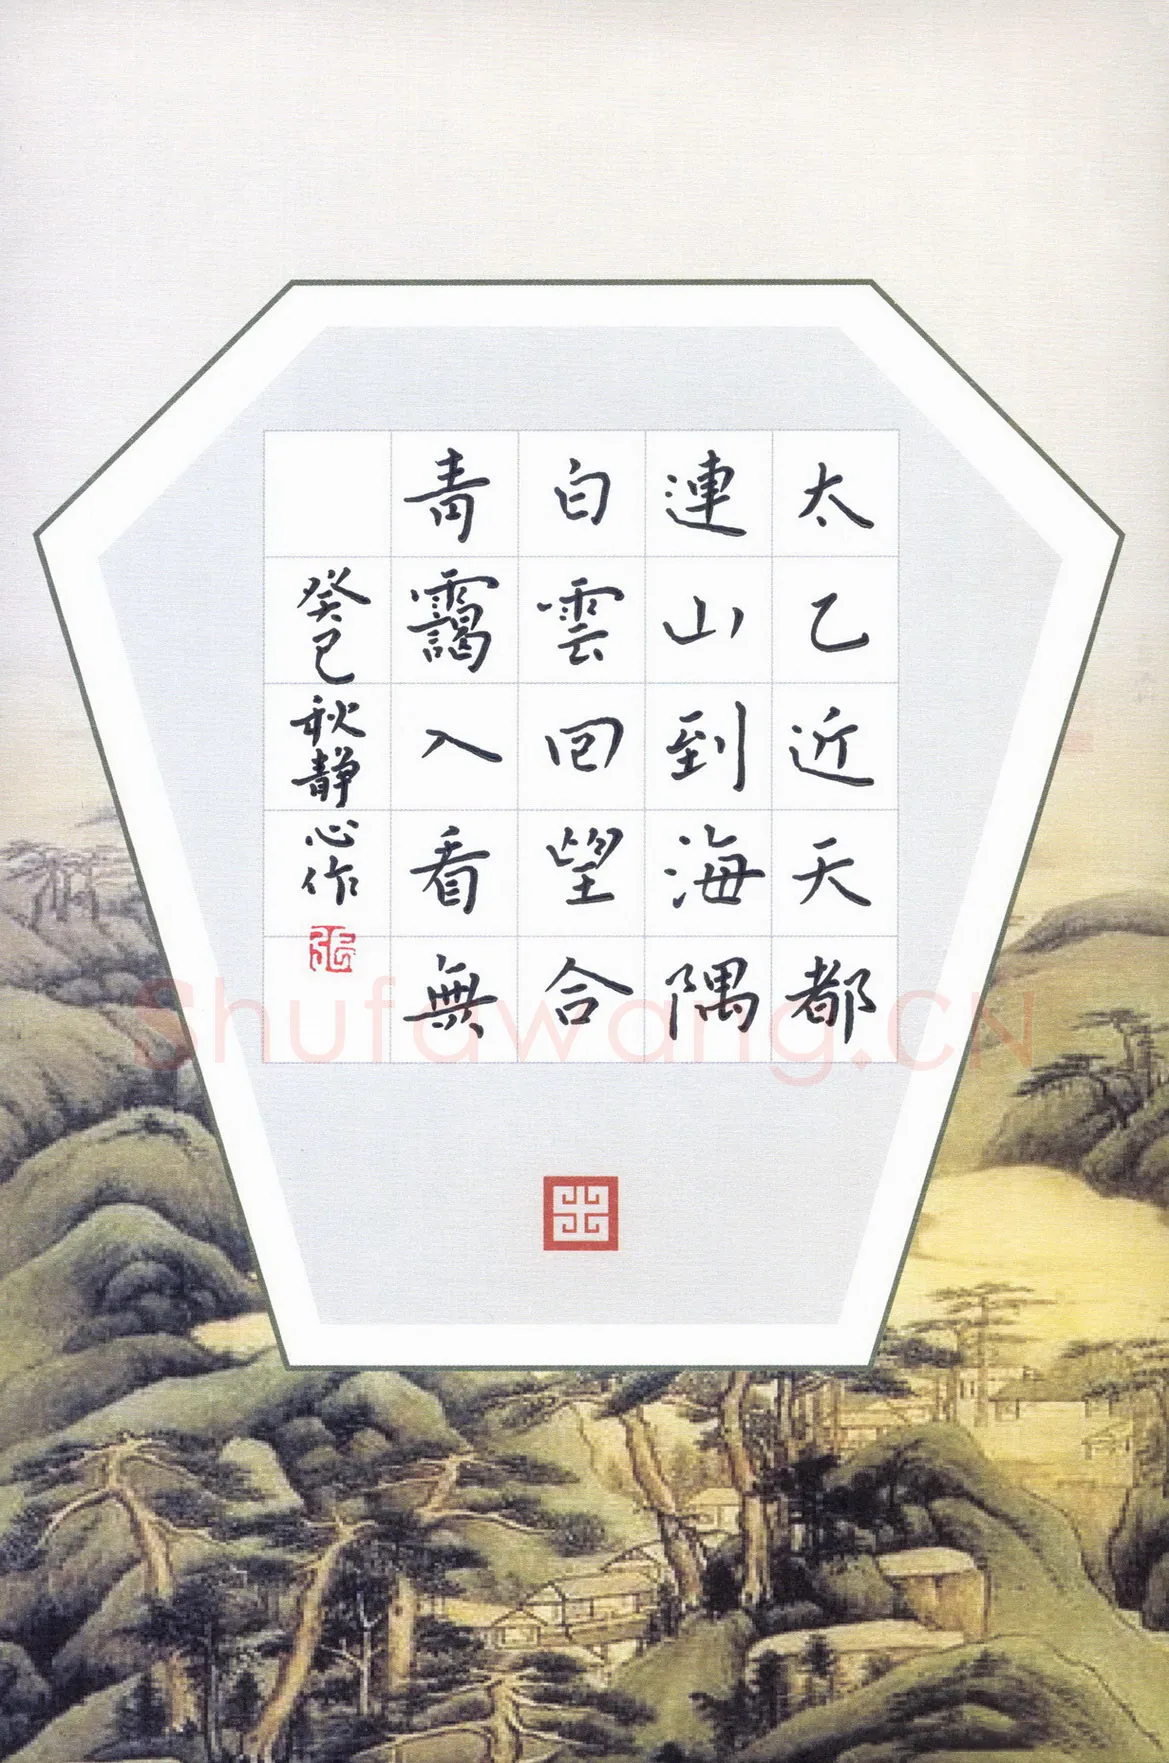 太乙近天都
連山到海隅
白雲回望合
青靄入看無
癸巳秋靜心作
張
Shufawang.CN